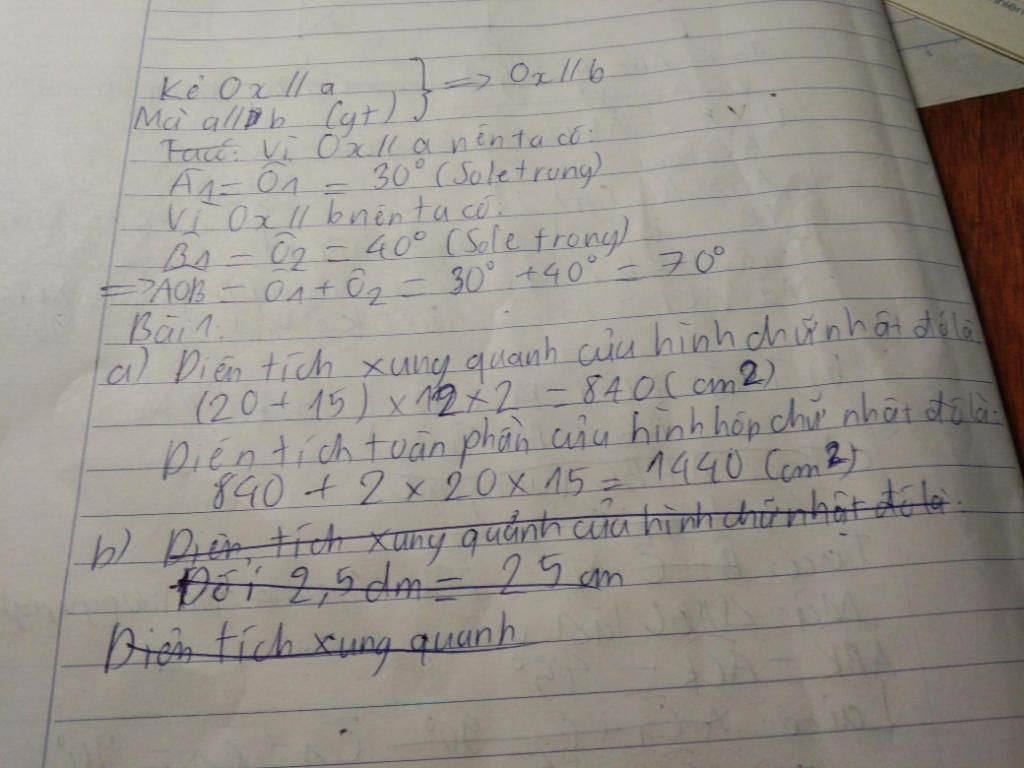 Kẻ Ox // a } => Ox // b
Mà a // b (gt)
Tacó: Vì Ox // a nên ta có:
Â1 = Ô1 = 30° (Sole trong)
Vì Ox // b nên ta có:
B̂1 = Ô2 = 40° (Sole trong)
=> AOB = Ô1 + Ô2 = 30° + 40° = 70°
Bài 1:
a) Diện tích xung quanh của hình chữ nhật đó là:
(20 + 15) x 12 x 2 = 840 (cm2)
Diện tích toàn phần của hình hộp chữ nhật đó là:
840 + 2 x 20 x 15 = 1440 (cm2)
b) Diện tích xung quanh của hình chữ nhật đó là:
Đổi 2,5 dm = 25 cm
Diện tích xung quanh